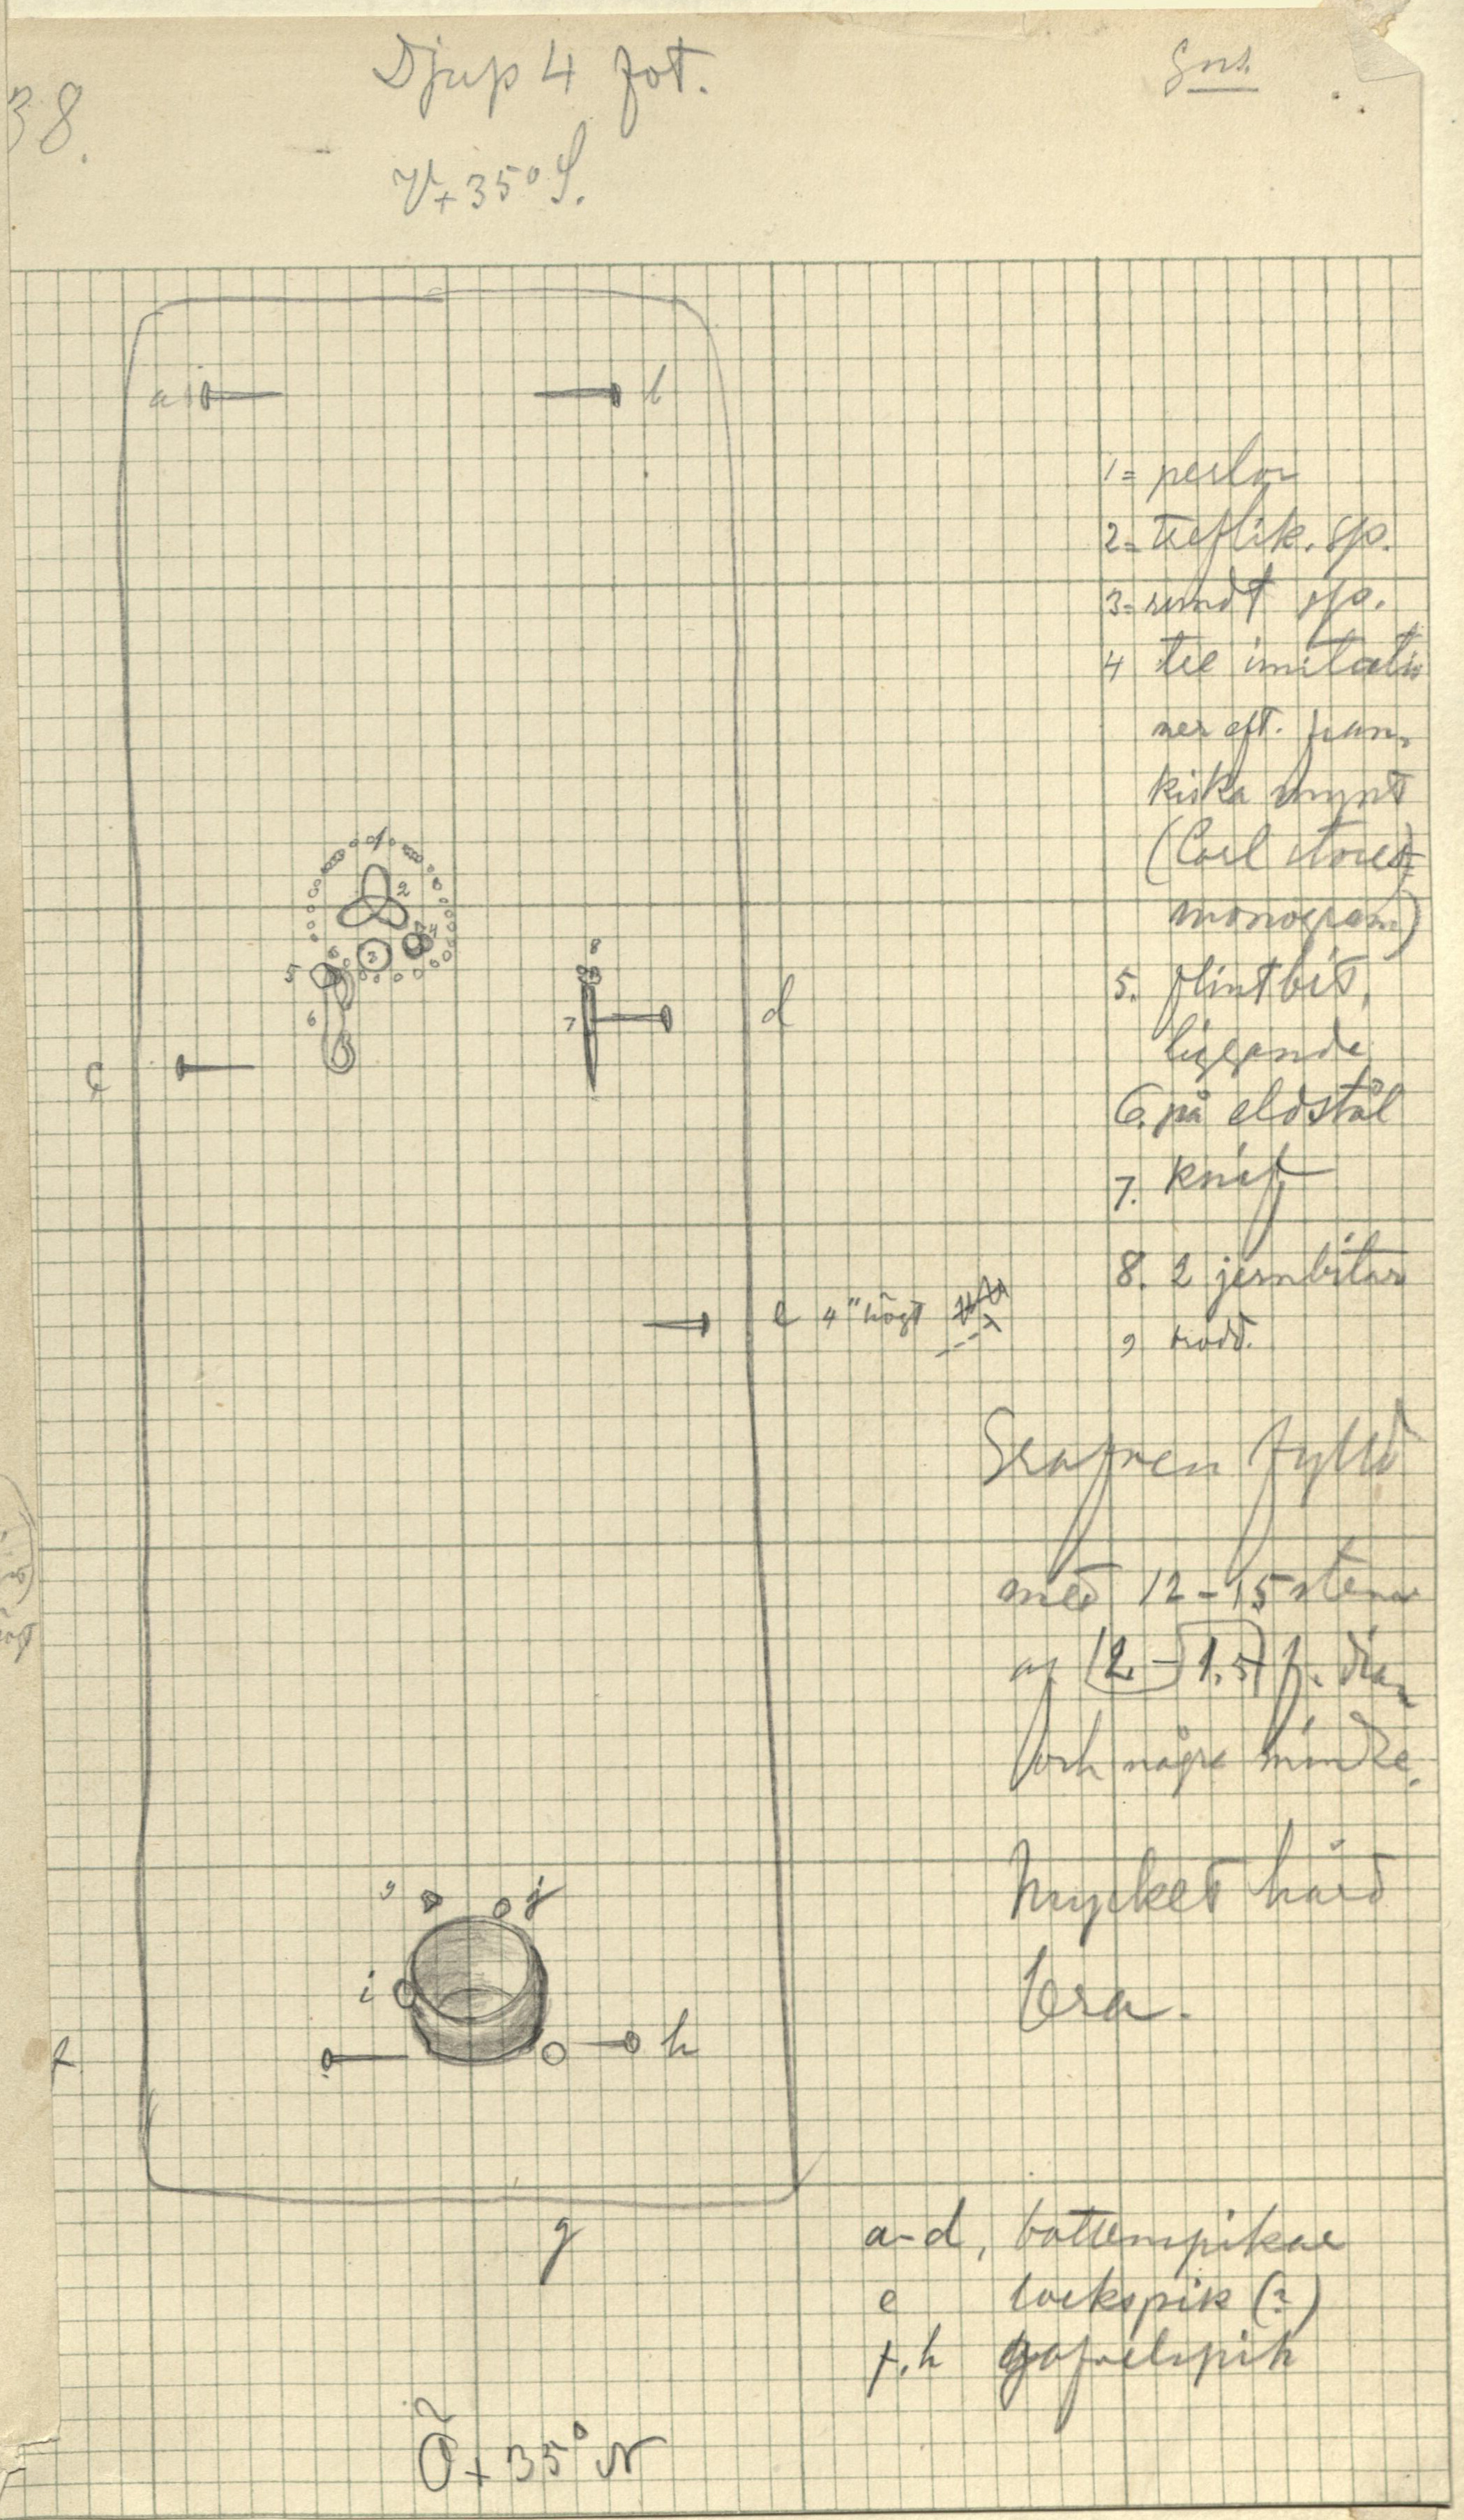 38.
Djup 4 fot.
V+35° S.
a
b
1
2
3
4
5
6
7
8
c
d
e 4" högt
1= perlor
2= treflik. sp.
3= rundt sp.
4 tre imitatio
ner eft. fran-
kiska mynt
(Carl d. stores
monogram)
5. flintbit,
liggande
6. på eldstål
7. knif
8. 2 jernbitar
9 brodd.
Grafven fylld
med 12-15 stenar
af 2-1,5 f. diam
och några mindre.
Mycket hård
lera.
9
j
i
f
h
g
a-d, bottenspikar
e lockspik (?)
f.h gafvelspik
Ö+35° N